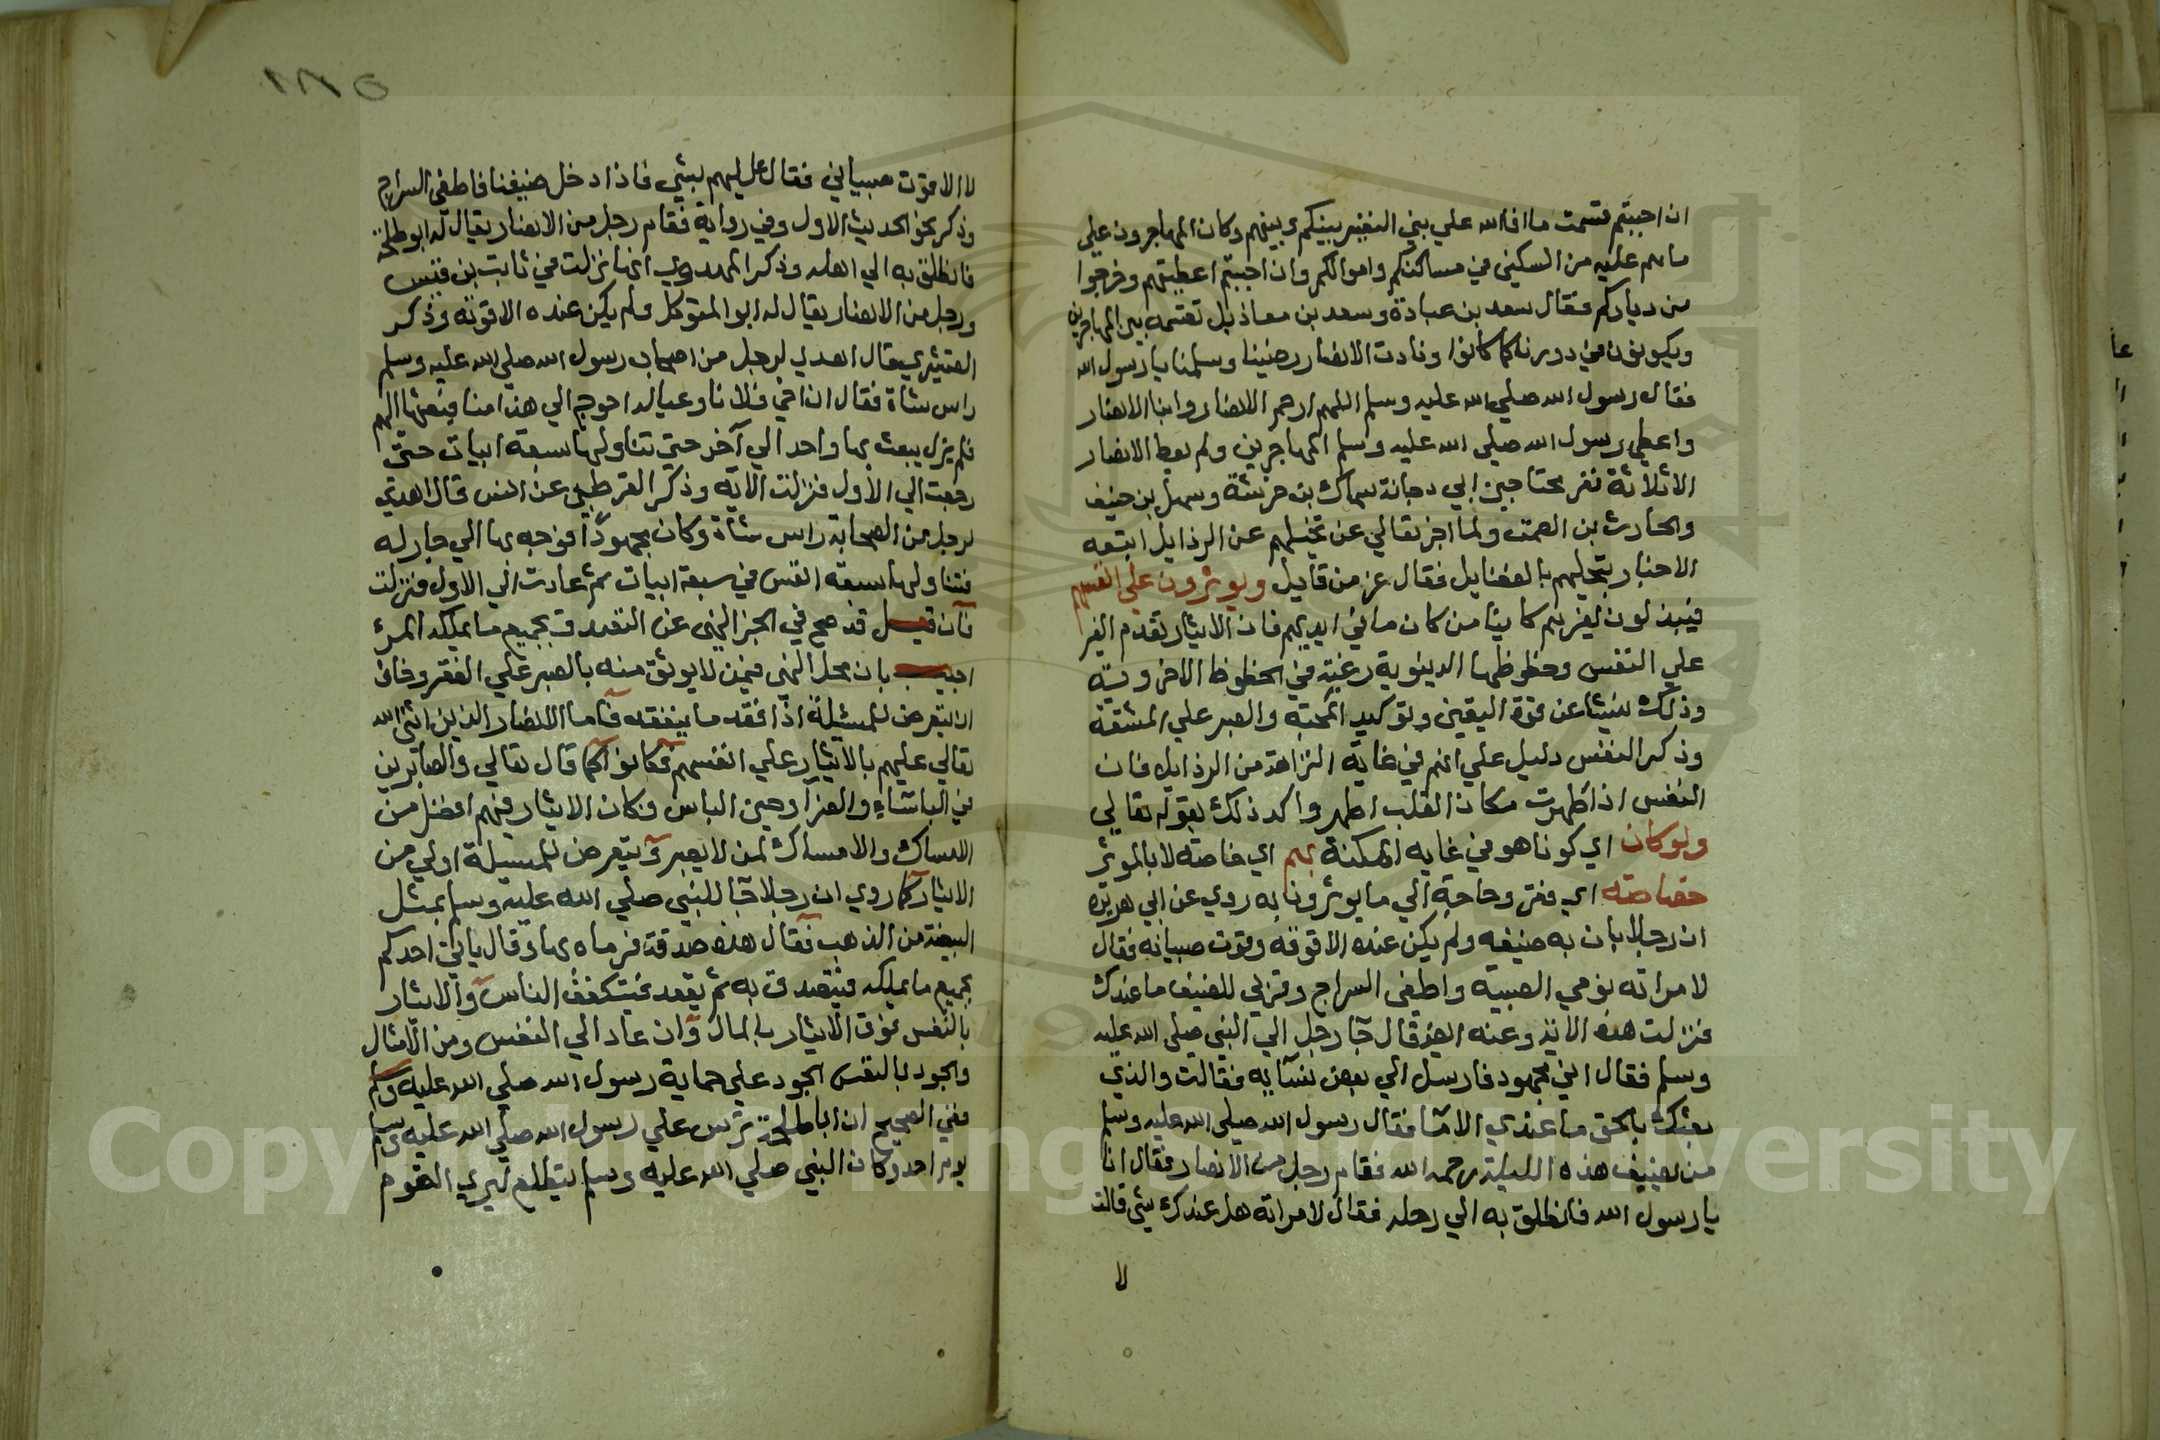 ان احببتم قسمت ما افا الله علي بني النضير بينكم وبينهم وكان المهاجرون علي
ما هم عليه من السكني في مساكنكم واموالكم وان احببتم اعطيتهم وخرجوا
من دياركم فقال سعد بن عبادة وسعد بن معاذ بل تقسمه بين المهاجرين
ويكونون في دورنا كما كانوا ونادت الانصار رضينا وسلمنا يا رسول الله
فقال رسول الله صلي الله عليه وسلم اللهم ارحم الانصار وابنا الانصار
واعطي رسول الله صلي الله عليه وسلم المهاجرين ولم يعط الانصار
الا ثلاثة نفر محتاجين ابي دجانة سماك بن خرشة وسهل بن حنيف
والحارث بن الصمت ولما اخبر تعالي عن تخليهم عن الرذايل اتبعه
الاخبار بتحليهم بالفضايل فقال عز من قايل ويوثرون علي انفسهم
فيبذلون لغيرهم كاينا من كان ما في ايديهم فان الايثار تقدم الغير
علي النفس وحظوظها الدنيوية رغبة في الحظوظ الاخروية
وذلك ينشا عن قوة اليقين وتوكيد المحبة والصبر علي المشقة
وذكر النفس دليل علي انهم في غاية النزاهة من الرذايل فان
النفس اذا طهرت كان القلب اطهر واكد ذلك بقوله تعالي
ولو كان اي كونا هو في غاية المكنة بهم اي خاصة لا بالموثر
خصاصة اي فقر وحاجة الي ما يوثرون به روي عن ابي هريرة
ان رجلا بات به ضيفه ولم يكن عنده الا قوته وقوت صبيانه فقال
لامراته نومي الصبية واطفي السراج وقربي للضيف ما عندك
فنزلت هذه الاية وعنه ايضا قال جا رجل الي النبي صلي الله عليه
وسلم فقال اني مجهود فارسل الي بعض نسآيه فقالت والذي
بعثك بالحق ما عندي الا مآ فقال رسول الله صلي الله عليه وسلم
من يضيف هذه الليلة رحمه الله فقام رجل من الانصار فقال انا
يا رسول الله فانطلق به الي رحله فقال لامراته هل عندك شي قالت
لا
١٨٥
لا الا قوت صبياني فقال علليهم بشي فاذا دخل ضيفنا فاطفي السراج
وذكر نحو الحديث الاول وفي رواية فقام رجل من الانصار يقال له ابو طلحة
فانطلق به الي اهله وذكر المهدوي انها نزلت في ثابت بن قيس
ورجل من الانصار يقال له ابو المتوكل ولم يكن عنده الا قوته وذكر
القشيري قال اهدي لرجل من اصحاب رسول الله صلي الله عليه وسلم
راس شاة فقال ان اخي فلانا وعياله احوج الي هذا منا فبعثها اليهم
فلم يزل يبعث بها واحد الي آخر حتي تناولها سبعة ابيات حتي
رجعت الي الاول فنزلت الاية وذكر القرطبي عن انس قال اهدي
لرجل من الصحابة راس شاة وكان مجهودا فوجه بها الي جار له
فتناولها سبعة انفس في سبعة ابيات ثم عادت الي الاول فنزلت
فآن قيل قد صح في الخبر النهي عن التصدق بجميع ما يملكه المرء
اجيب بان محل النهي فيمن لا يوثق منه بالصبر علي الفقر وخاف
ان يتعرض للمسيلة اذا فقد ما ينفقه فآما الانصار الذين اثني الله
تعالي عليهم بالايثار علي انفسهم فكانوا كما قال تعالي والصابرين
في الباساء والضرا وحين الباس وكان الايثار فيهم افضل من
الامساك والامساك لمن لا يصبر ويتعرض للمسيلة اولي من
الايثار كما روي ان رجلا جا للنبي صلي الله عليه وسلم بمثل
البيضة من الذهب فقال هذه صدقة فرماه بها وقال ياتي احدكم
بجميع ما يملكه فيتصدق به ثم يقعد فيتكفف الناس والايثار
بالنفس فوق الايثار بالمال وان عاد الي النفس ومن الامثال
والجود بالنفس الجود علي حماية رسول الله صلي الله عليه وسلم
ففي الصحيح ان ابا طلحة ترس علي رسول الله صلي الله عليه وسلم
يوم احد وكان النبي صلي الله عليه وسلم يتطلع ليري القوم
Copyright © King Saud University